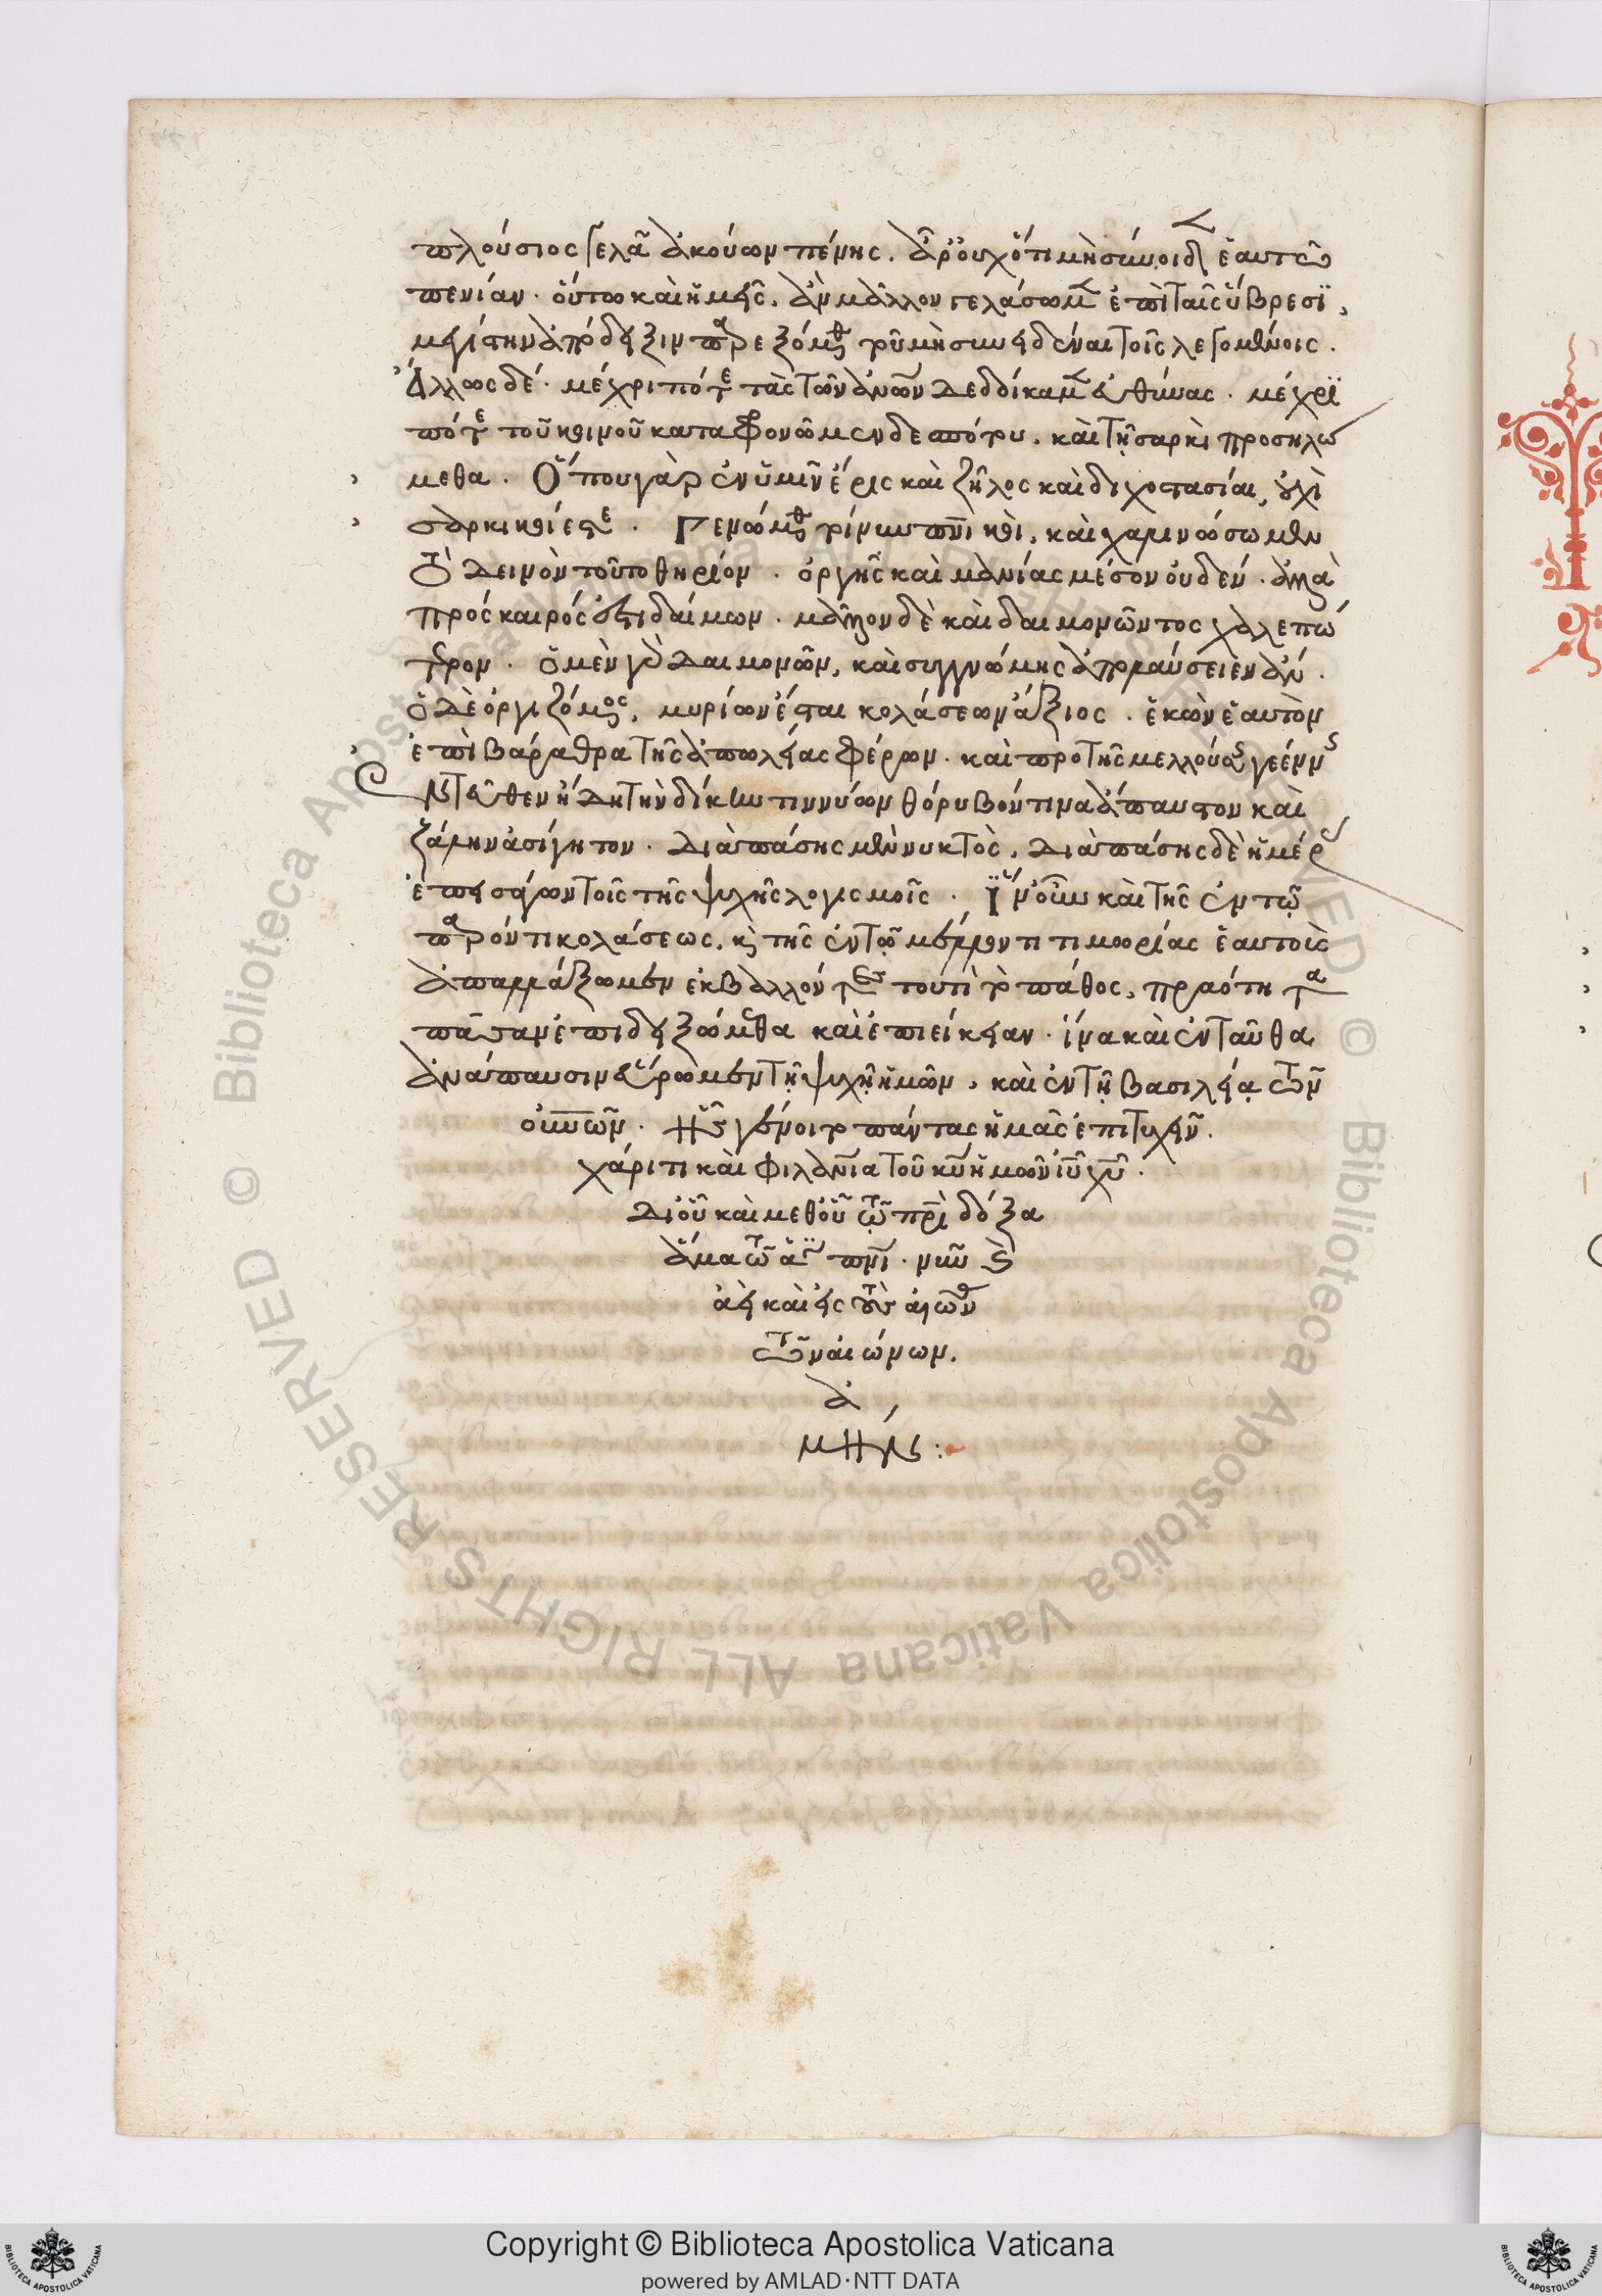 πλούσιος γελᾶ ἀκούων πένης. ἆρ' οὐχ ὅτι μὴ σύνοιδεν ἑαυτῶ
πενίαν. οὕτω καὶ ἡμεῖς, ἂν μᾶλλον γελάσωμεν ἐπὶ ταῖς ὕβρεσϊ,
μεγίστην ἀπόδειξιν παρεξόμεθα τοῦ μὴ συνειδέναι τοῖς λεγομένοις.
Ἄλλως δέ. μέχρι πότε τὰς τῶν ἀνων δεδοίκαμεν εὐθύνας. μέχρϊ
πότε τοῦ κοινοῦ καταφρονῶμεν δεσπότου. καὶ τῆ σαρκὶ προσηλώ
μεθα. Ὅπου γὰρ ἐν ὑμῖν ἔρις καὶ ζῆλος καὶ διχοστασίαι, οὐχὶ
σαρκικοί ἐστε. Γενώμεθα τοίνυν πνικοὶ, καὶ χαλινώσωμεν
τὸ δεινὸν τοῦτο θηρίον. ὀργῆς καὶ μανίας μέσον οὐδέν. ἀλλὰ
πρόσκαιρός ἐστι δαίμων. μᾶλλον δὲ καὶ δαιμονῶντος χαλεπώ
τερον. ὁ μὲν γὰρ δαιμονῶν, καὶ συγγνώμης ἀπολαύσειεν ἄν.
ὁ δὲ ὀργιζόμενος, μυρίων ἔσται κολάσεων ἄξιος. ἑκὼν ἑαυτὸν
ἐπὶ βάραθρα τῆς ἀπωλείας φέρων. καὶ πρὸ τῆς μελλούσης γεέννης
ἐντεῦθεν ἤδη τὴν δίκην τιννύων θόρυβόν τινα ἄπαυστον καὶ
ζάλην ἀσίγητον. διὰ πάσης μὲν νυκτὸς, διὰ πάσης δὲ ἡμέρας
ἐπεισάγων τοῖς τῆς ψυχῆς λογισμοῖς. Ἵν' οὖν καὶ τῆς ἐν τῶ
παρόντι κολάσεως, κ τῆς ἐν τῶ μέλλοντι τιμωρίας ἑαυτοὺς
ἀπαλλάξωμεν ἐκβαλλόντες τουτὶ τὸ πάθος, πραότητα
πᾶσαν ἐπιδειξώμεθα καὶ ἐπιείκειαν. ἵνα καὶ ἐνταῦθα
ἀνάπαυσιν εὕρωμεν τῆ ψυχῆ ἡμῶν, καὶ ἐν τῆ βασιλεία τῶν
οὐνων. Ἧς γένοιτο πάντας ἡμᾶς ἐπιτυχεῖν.
χάριτι καὶ φιλανία τοῦ κυ ἡμῶν ιυ χυ.
Δι' οὗ καὶ μεθ' οὗ τῶ πρὶ δόξα
ἅμα τῶ ἁγίω πνι. νῦν κ
ἀεὶ καὶ εἰς τοὺς αἰῶνας
τῶν αἰώνων.
ἀ
μήν:
Copyright © Biblioteca Apostolica Vaticana
powered by AMLAD·NTT DATA